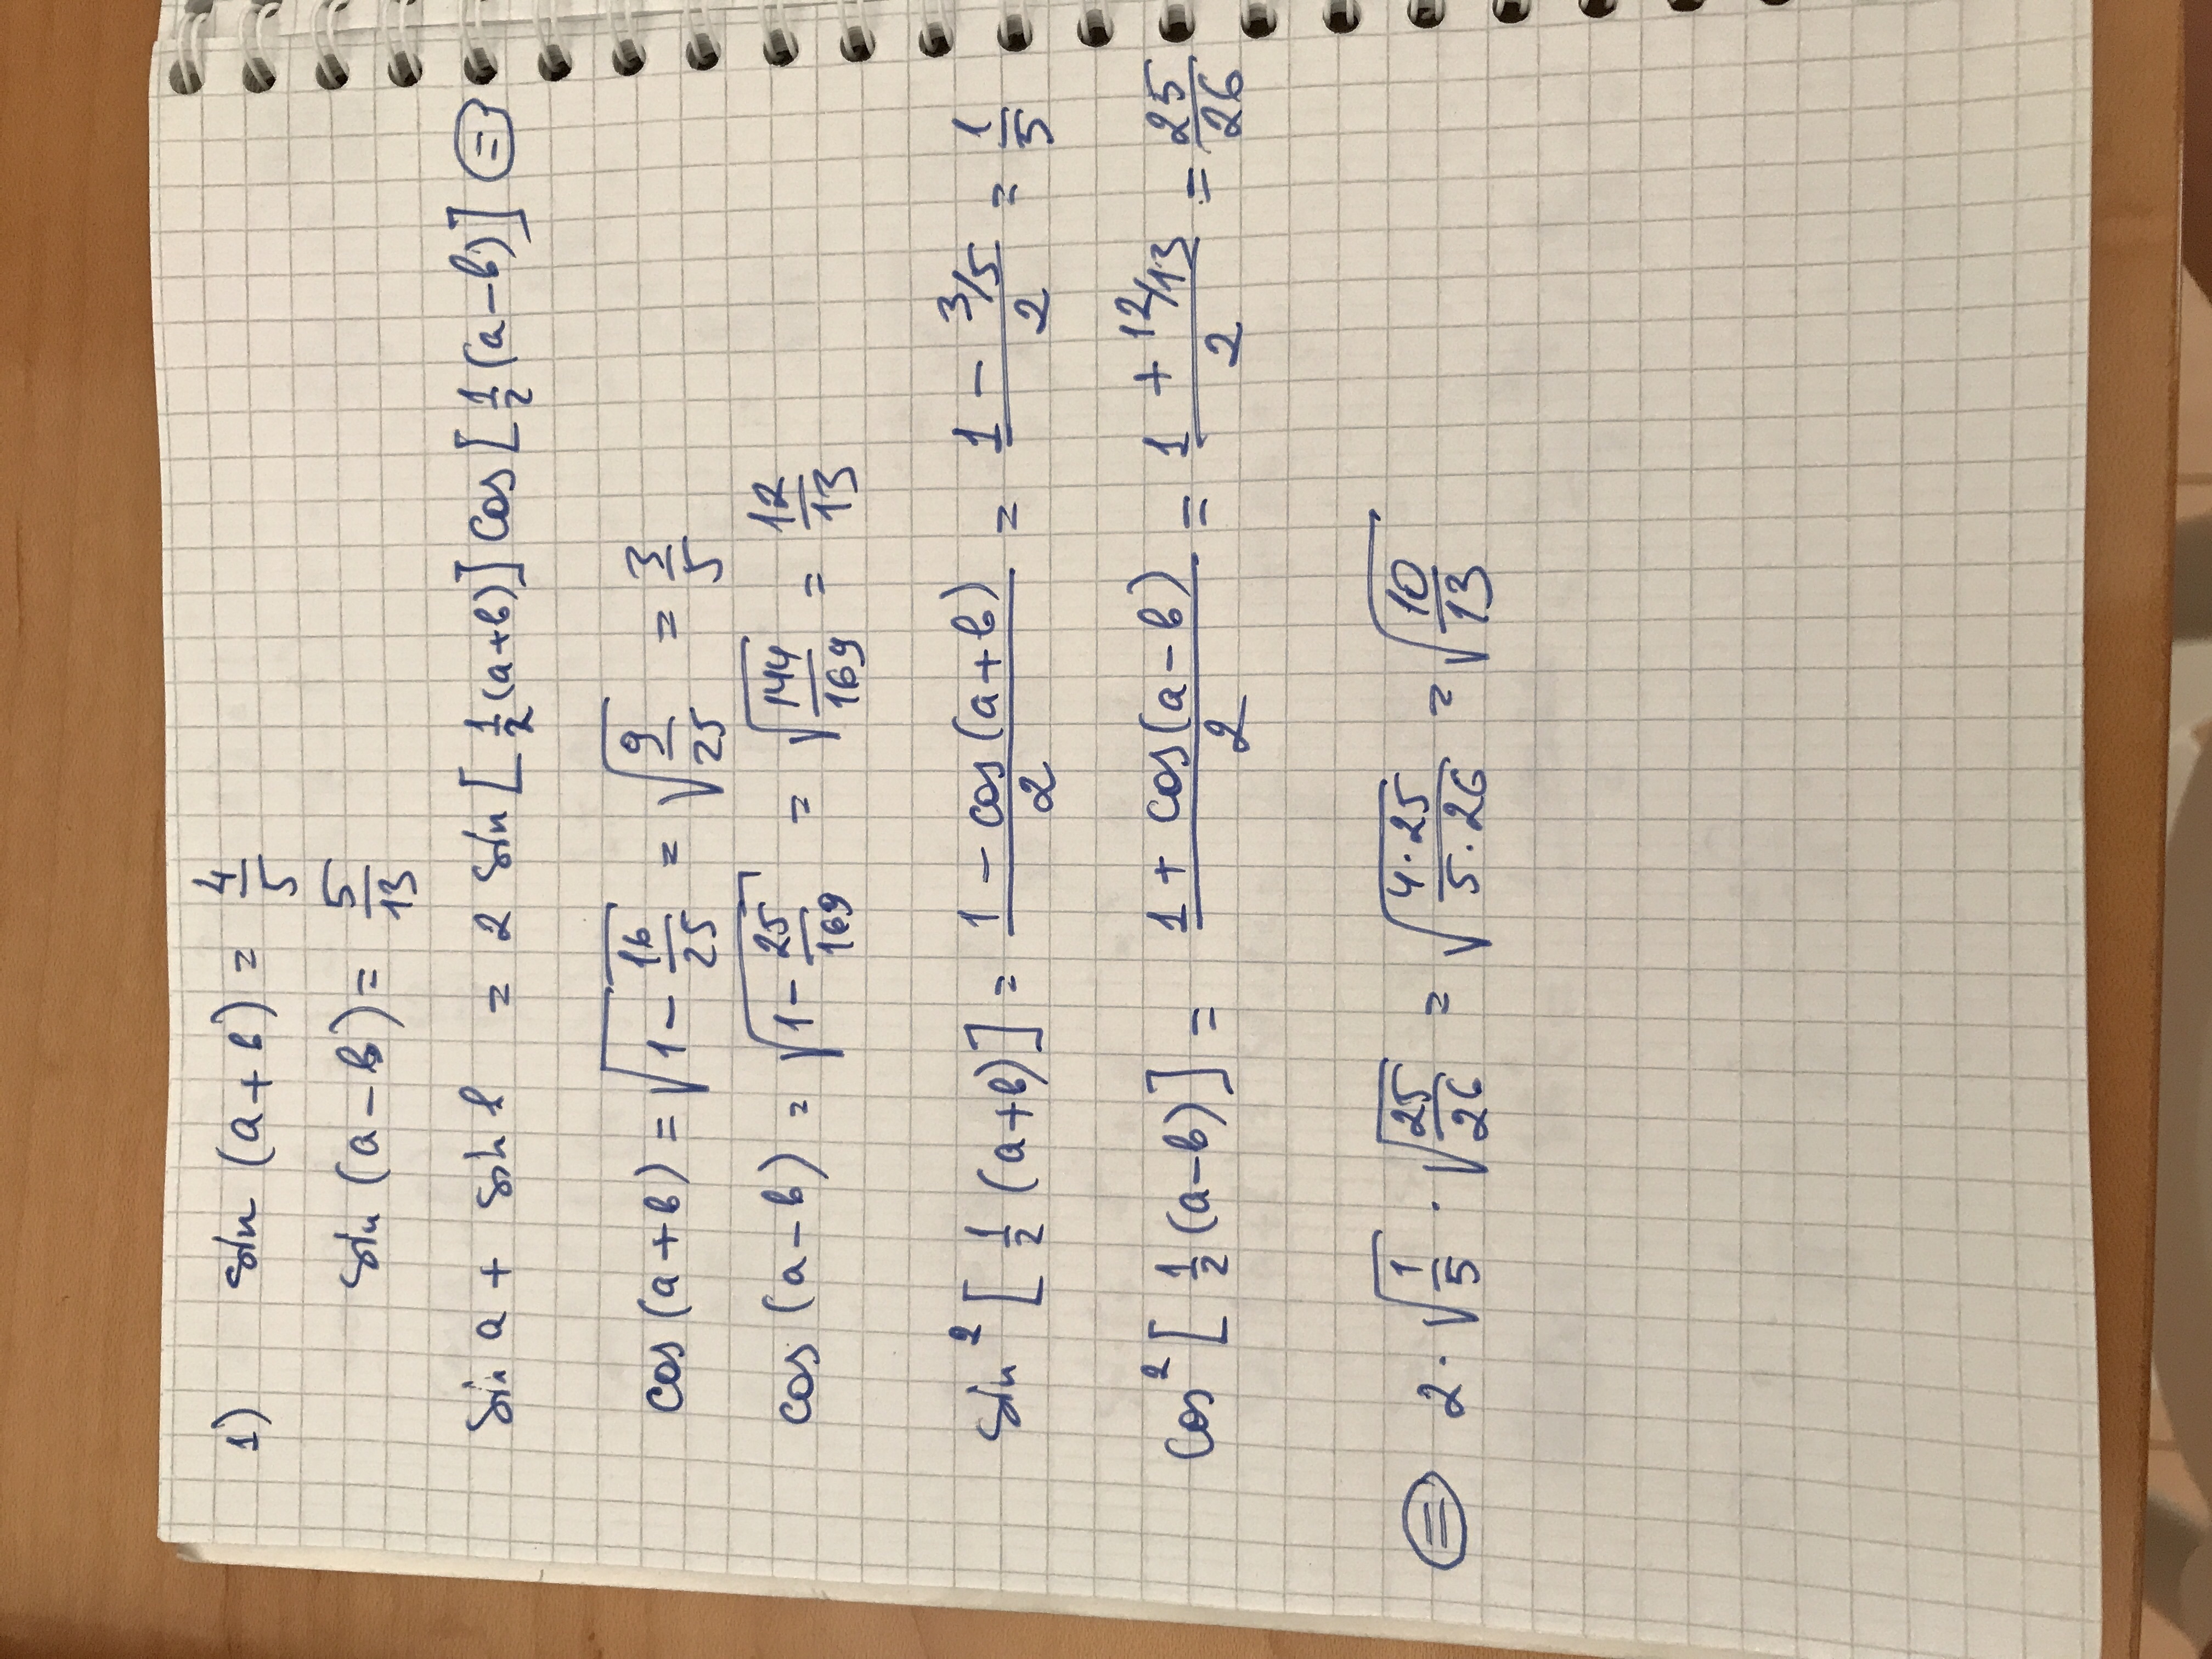 1) sin (a+b) = 4/5
sin (a-b) = 5/13
sin a + sin b = 2 sin [1/2 (a+b)] cos [1/2 (a-b)] =
cos (a+b) = √(1 - 16/25) = √(9/25) = 3/5
cos (a-b) = √(1 - 25/169) = √(144/169) = 12/13
sin² [1/2 (a+b)] = (1 - cos (a+b))/2 = (1 - 3/5)/2 = 1/5
cos² [1/2 (a-b)] = (1 + cos (a-b))/2 = (1 + 12/13)/2 = 25/26
= 2 · √(1/5) · √(25/26) = √((4·25)/(5·26)) = √(10/13)